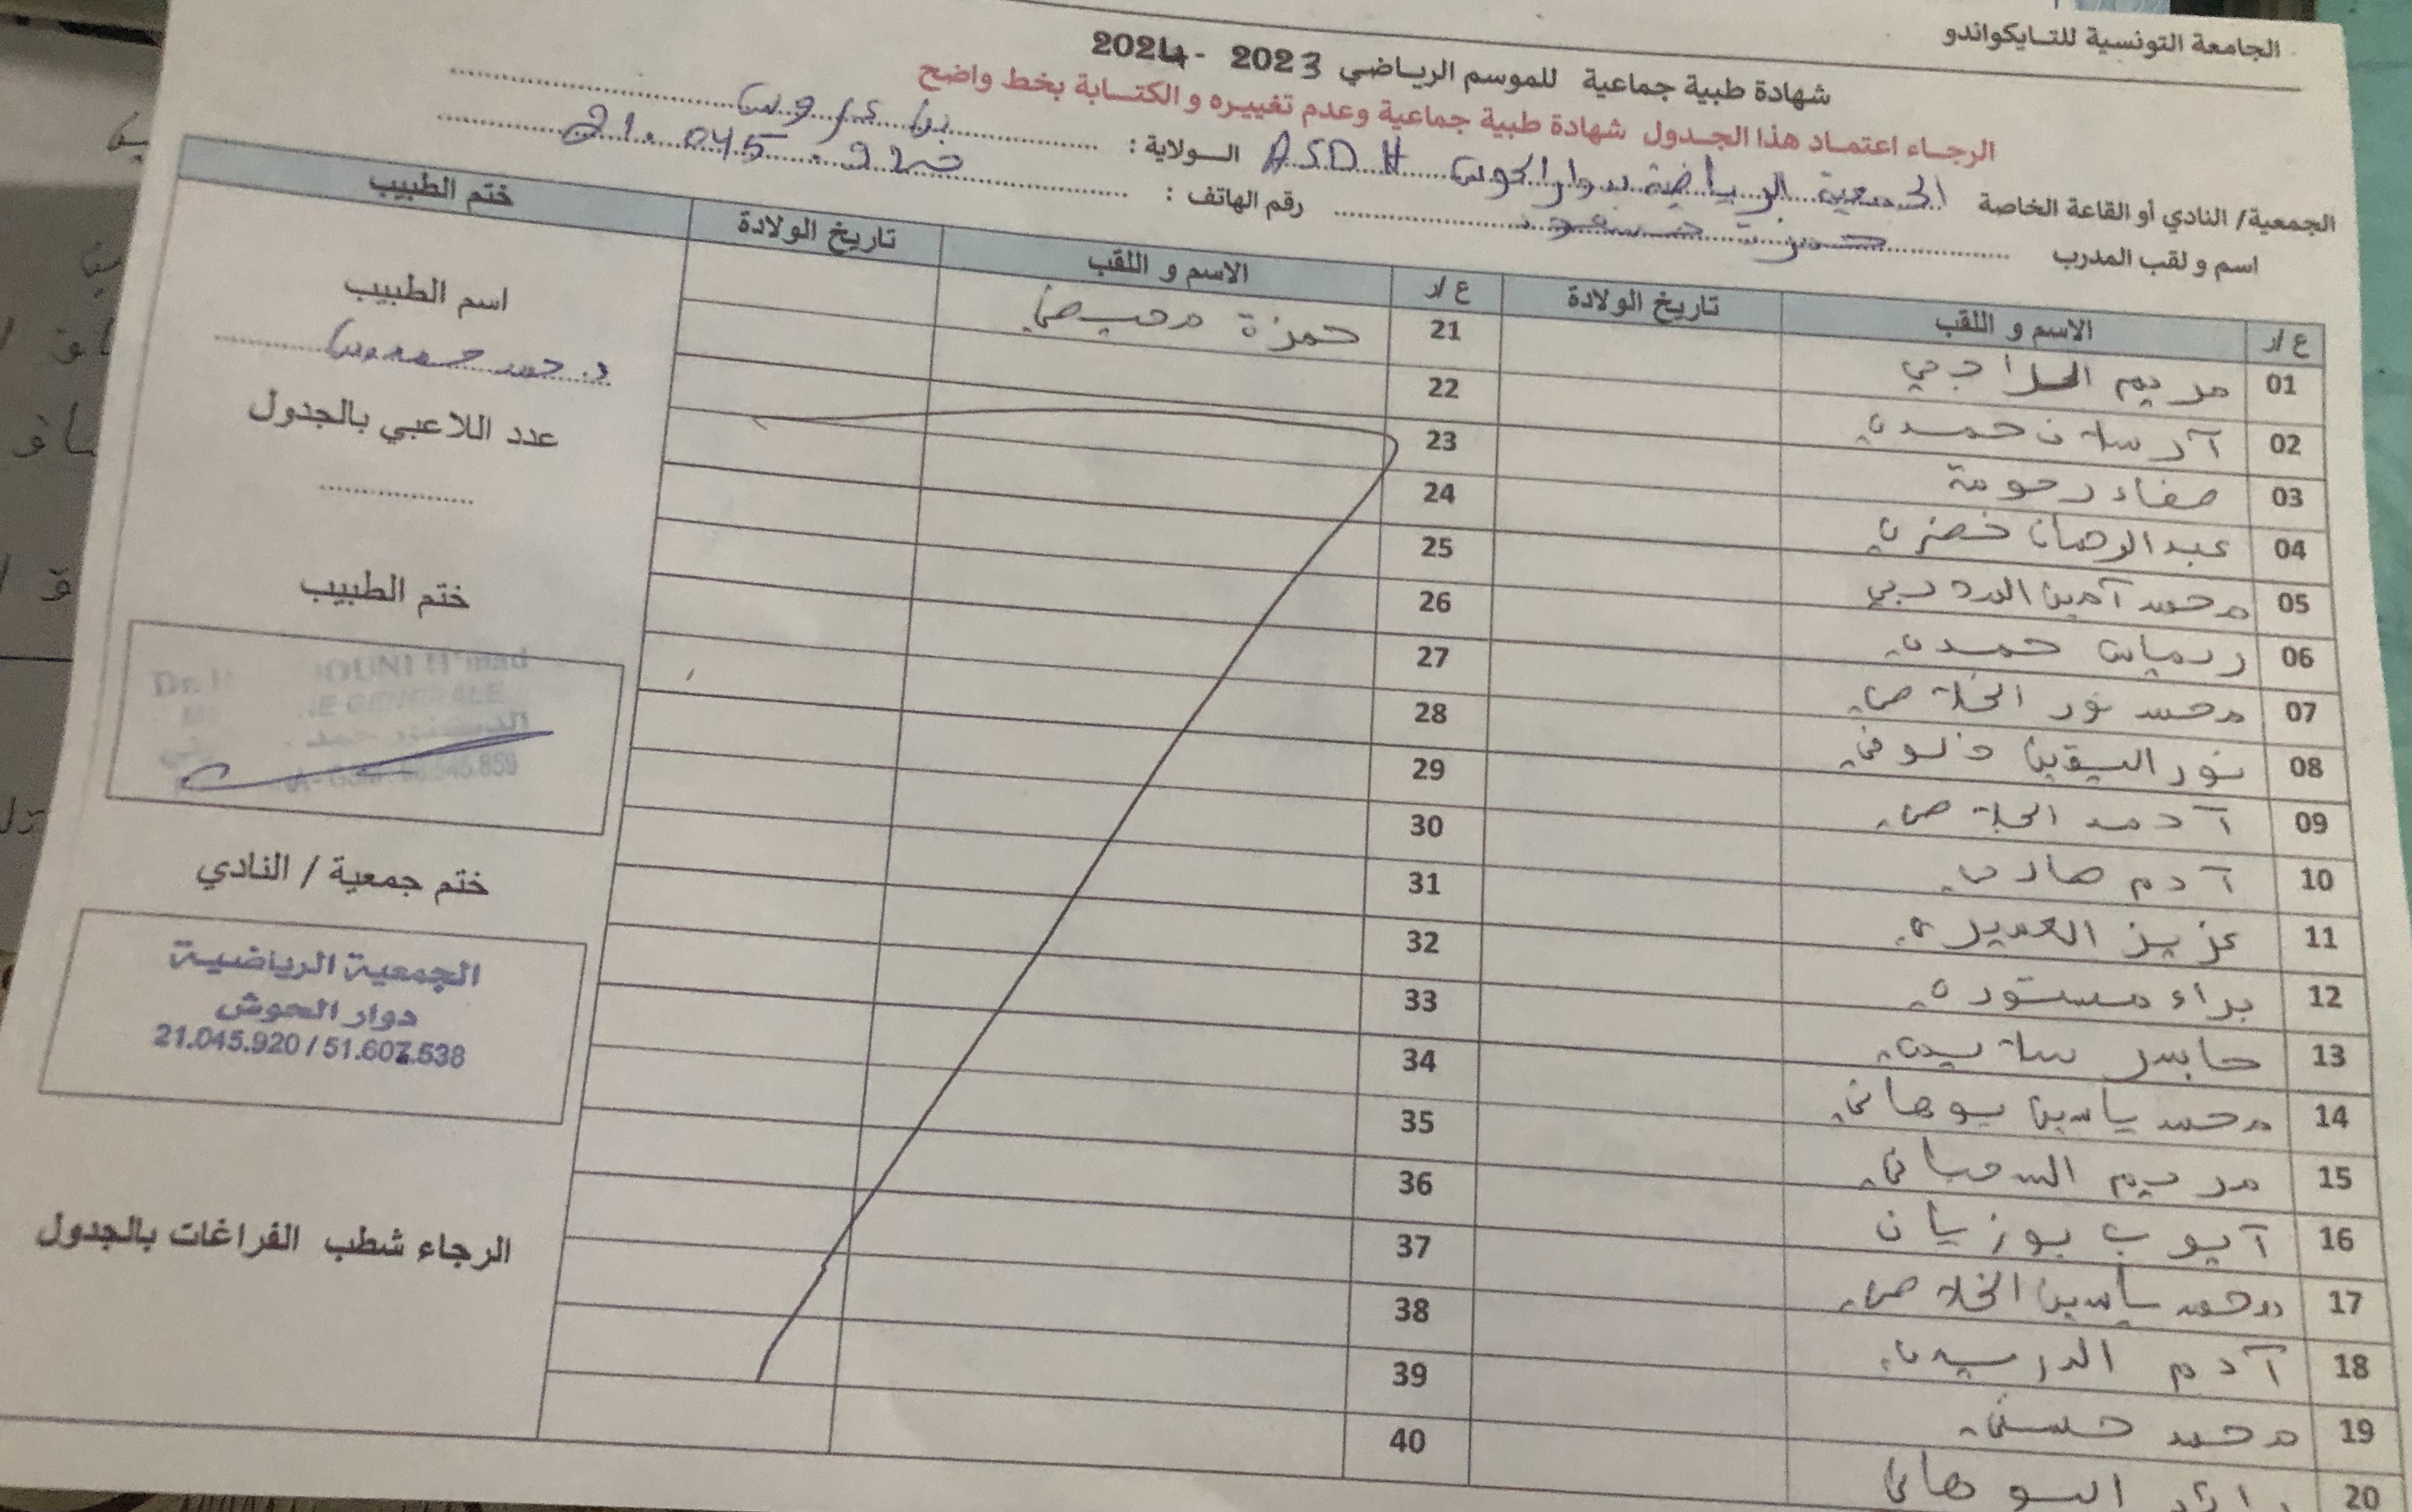 الجامعة التونسية للتايكواندو
شهادة طبية جماعية للموسم الرياضي 2023 - 2024
الرجاء اعتماد هذا الجدول شهادة طبية جماعية وعدم تغييره و الكتابة بخط واضح
الجمعية/ النادي أو القاعة الخاصة الجمعية الرياضية بدوار الحوش A.S.D.H الولاية : بن عروس
اسم و لقب المدرب حمزة مسعود رقم الهاتف : 21.045.920
ع/ر الاسم و اللقب تاريخ الولادة ع/ر الاسم و اللقب تاريخ الولادة ختم الطبيب
01 مريم 21 حمزة
02 آرسلان حمدي 22
03 صفاء رحومة 23
04 عبد الرحمان خضري 24
05 محمد آمين 25
06 ريماس حمدي 26
07 محمد نور الخلاصي 27
08 نور اليقين 28
09 29
10 آدم 30
11 عزيز العميري 31
12 براء مستوري 32
13 33
14 محمد ياسين 34
15 مريم السحباني 35
16 آيوب بوزيان 36
17 محمد ياسين الخلاصي 37
18 آدم الدريدي 38
19 محمد حسني 39
20 40
اسم الطبيب
د. حمد
عدد اللاعبي بالجدول
ختم الطبيب
ختم جمعية / النادي
الجمعية الرياضية
دوار الحوش
21.045.920 / 51.607.538
الرجاء شطب الفراغات بالجدول